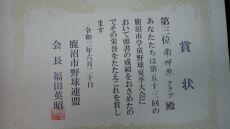 賞状
第三位 クラブ殿
あなたたちは第五十三回
鹿沼市学童野球夏季大会に
おいて頭書の成績をおさめたの
でその栄誉をたたえこれを賞し
ます
令和三年六月二十日
鹿沼市野球連盟
会長 福田英昭